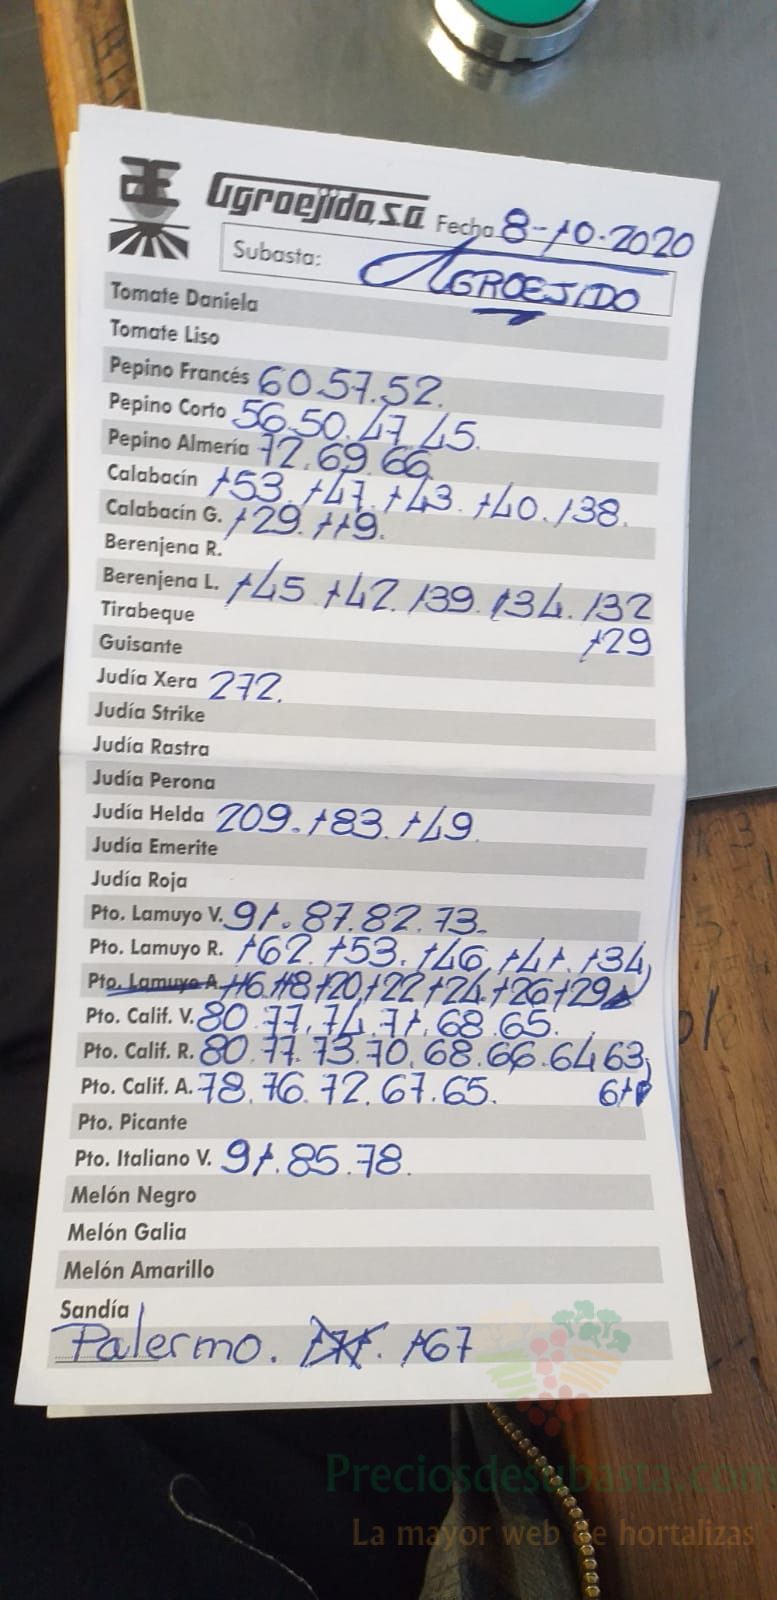 Agroejido, s.a. Fecha 8-10-2020
Subasta: AGROEJIDO
Tomate Daniela
Tomate Liso
Pepino Francés 60.57.52.
Pepino Corto 56.50.47.45.
Pepino Almería 72.69.66
Calabacín 153.147.143.140.138.
Calabacín G. 129.119.
Berenjena R.
Berenjena L. 145 142.139.134.132
Tirabeque 129
Guisante
Judía Xera 272.
Judía Strike
Judía Rastra
Judía Perona
Judía Helda 209.183.149.
Judía Emerite
Judía Roja
Pto. Lamuyo V. 91.87.82.73.
Pto. Lamuyo R. 162.153.146.141.134
Pto. Lamuyo A. 116.118.120.122.124.126.129
Pto. Calif. V. 80.77.74.71.68.65.
Pto. Calif. R. 80.77.73.70.68.66.64 63
Pto. Calif. A. 78.76.72.67.65. 61
Pto. Picante
Pto. Italiano V. 91.85.78.
Melón Negro
Melón Galia
Melón Amarillo
Sandía
Palermo. 171. 167
Preciosdesubasta.com
La mayor web de hortalizas